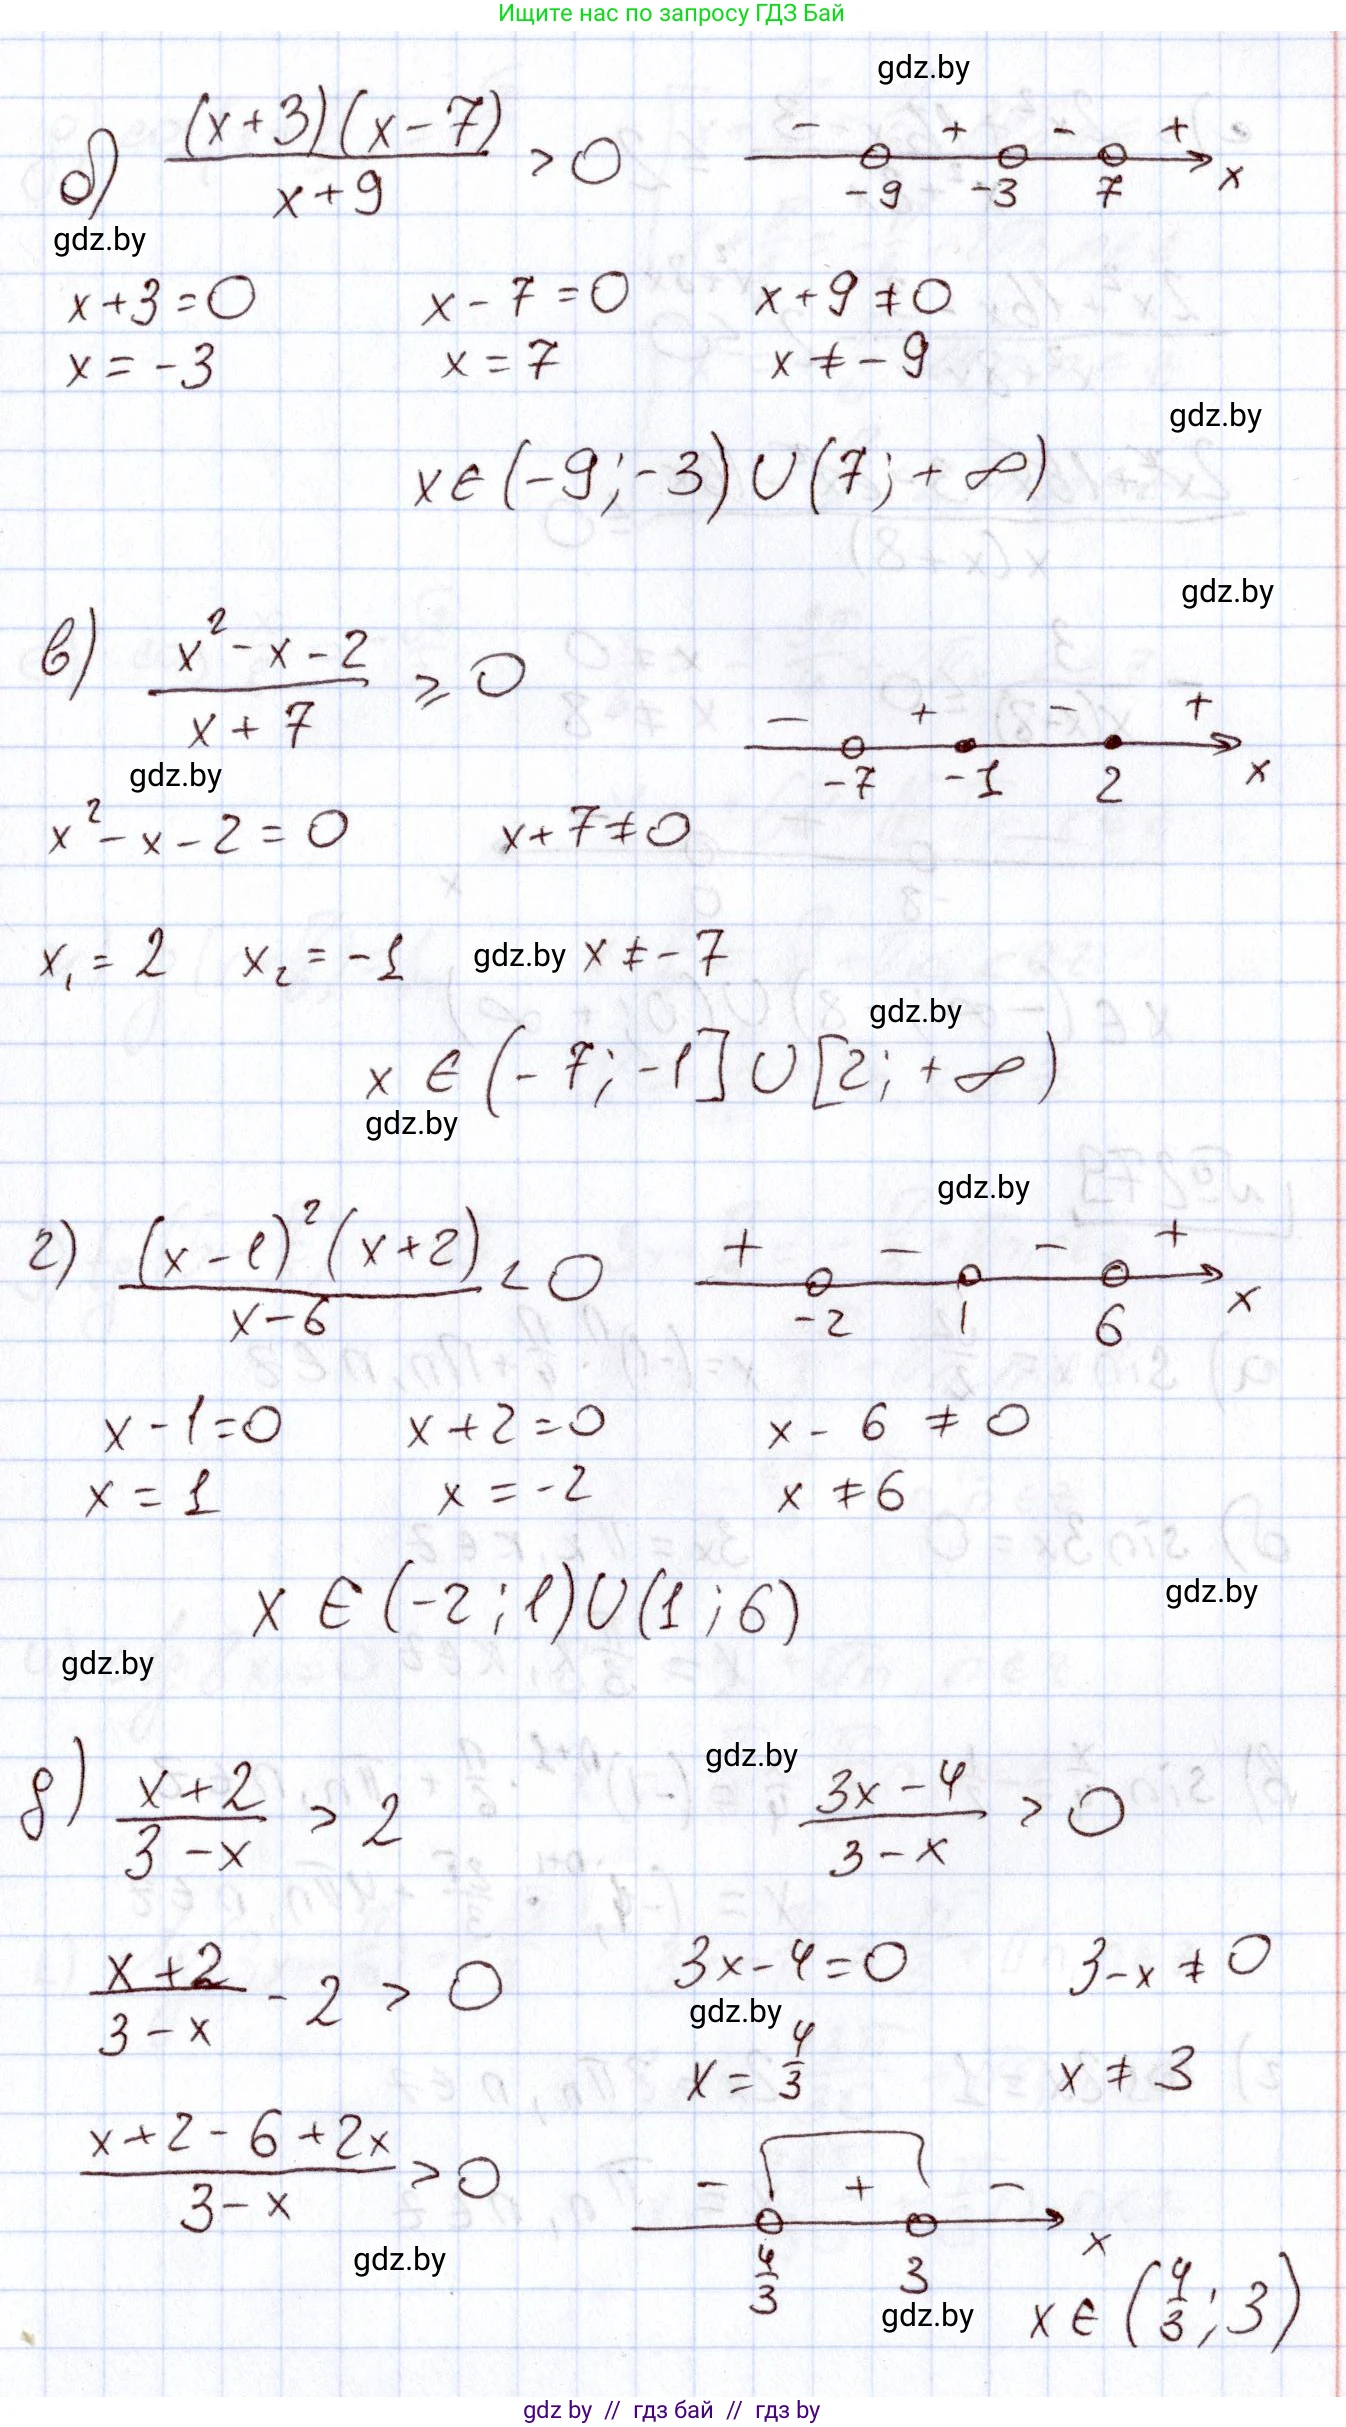 Ищите нас по запросу ГДЗ Бай
gdz.by
б) (x+3)(x-7)/(x+9) > 0
- + - +
-9 -3 7 x
gdz.by
x+3=0 x-7=0 x+9≠0
x=-3 x=7 x≠-9
gdz.by
x∈(-9;-3)∪(7;+∞)
gdz.by
в) (x²-x-2)/(x+7) ≥ 0
- + - +
-7 -1 2 x
gdz.by
x²-x-2=0 x+7≠0
x₁=2 x₂=-1 gdz.by x≠-7
gdz.by
x∈(-7;-1]∪[2;+∞)
gdz.by
gdz.by
г) (x-1)²(x+2)/(x-6) < 0
+ - - +
-2 1 6 x
x-1=0 x+2=0 x-6≠0
x=1 x=-2 x≠6
x∈(-2;1)∪(1;6)
gdz.by
gdz.by
д) (x+2)/(3-x) > 2
gdz.by
(3x-4)/(3-x) > 0
(x+2)/(3-x) - 2 > 0
3x-4=0 3-x≠0
gdz.by
x=4/3 x≠3
(x+2-6+2x)/(3-x) > 0
- + -
4/3 3 x
gdz.by
gdz.by
x∈(4/3;3)
gdz by // гдз бай // гдз by